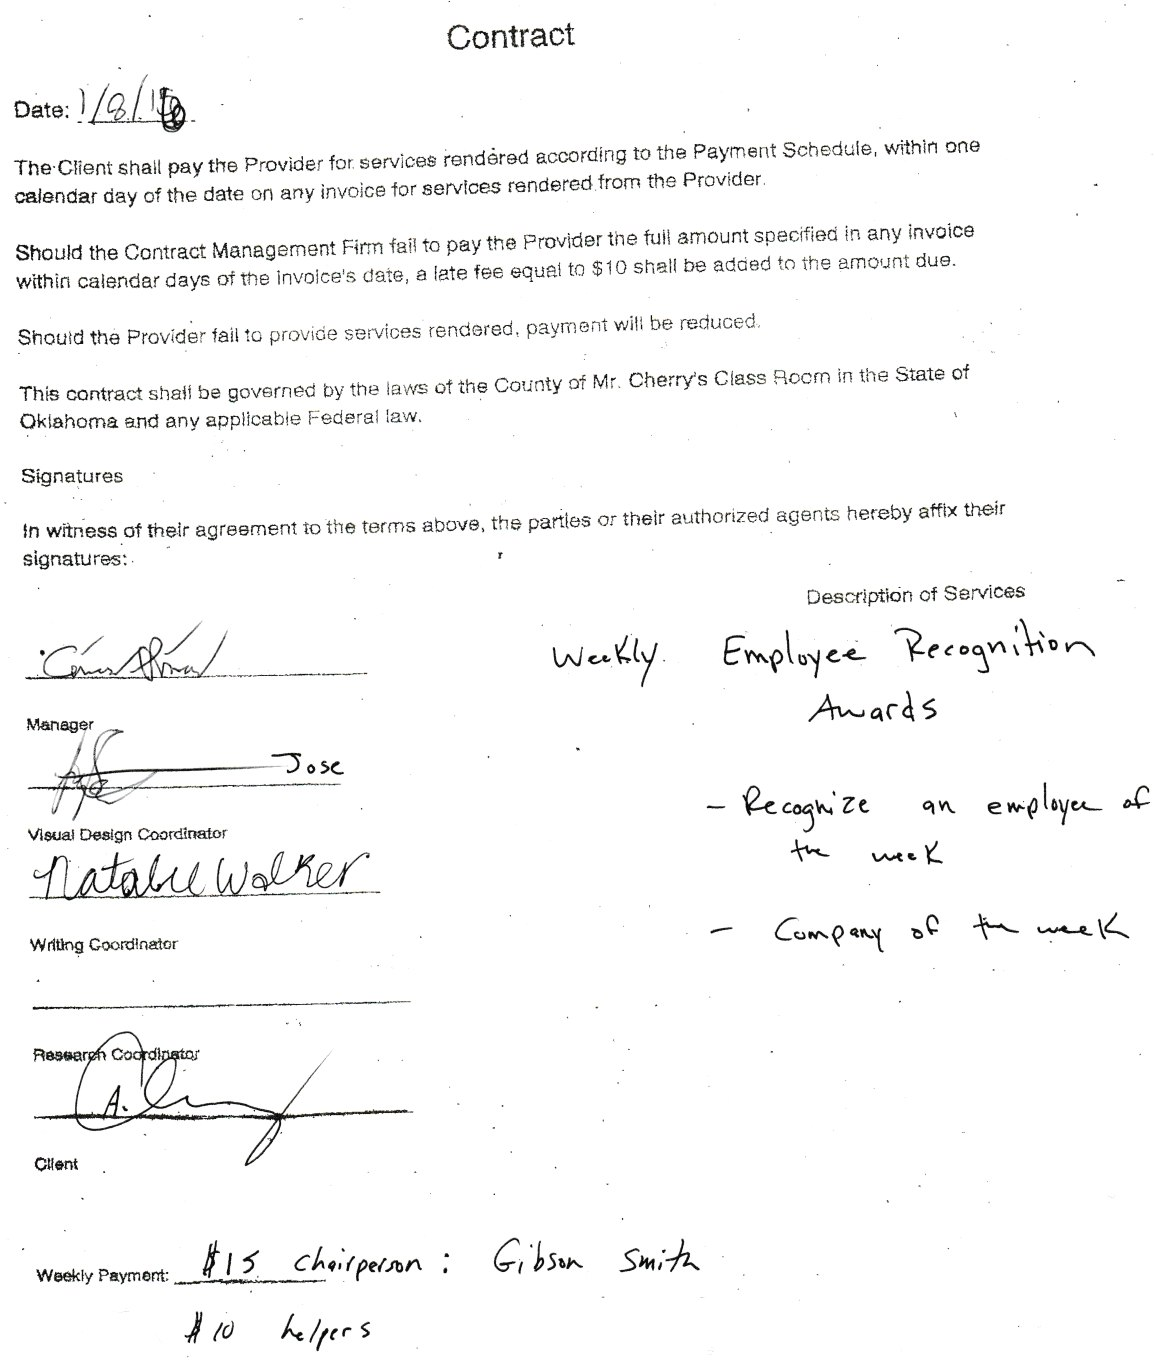 Contract
Date: 1/8/1
The Client shall pay the Provider for services rendered according to the Payment Schedule, within one
calendar day of the date on any invoice for services rendered from the Provider.
Should the Contract Management Firm fail to pay the Provider the full amount specified in any invoice
within calendar days of the invoice's date, a late fee equal to $10 shall be added to the amount due.
Should the Provider fail to provide services rendered, payment will be reduced.
This contract shall be governed by the laws of the County of Mr. Cherry's Class Room in the State of
Oklahoma and any applicable Federal law.
Signatures
In witness of their agreement to the terms above, the parties or their authorized agents hereby affix their
signatures:
Manager
Jose
Visual Design Coordinator
Natalie Walker
Writing Coordinator
Research Coordinator
A.
Client
Description of Services
Weekly Employee Recognition
Awards
- Recognize an employee of
the week
- Company of the week
Weekly Payment: $15 chairperson: Gibson Smith
$10 helpers